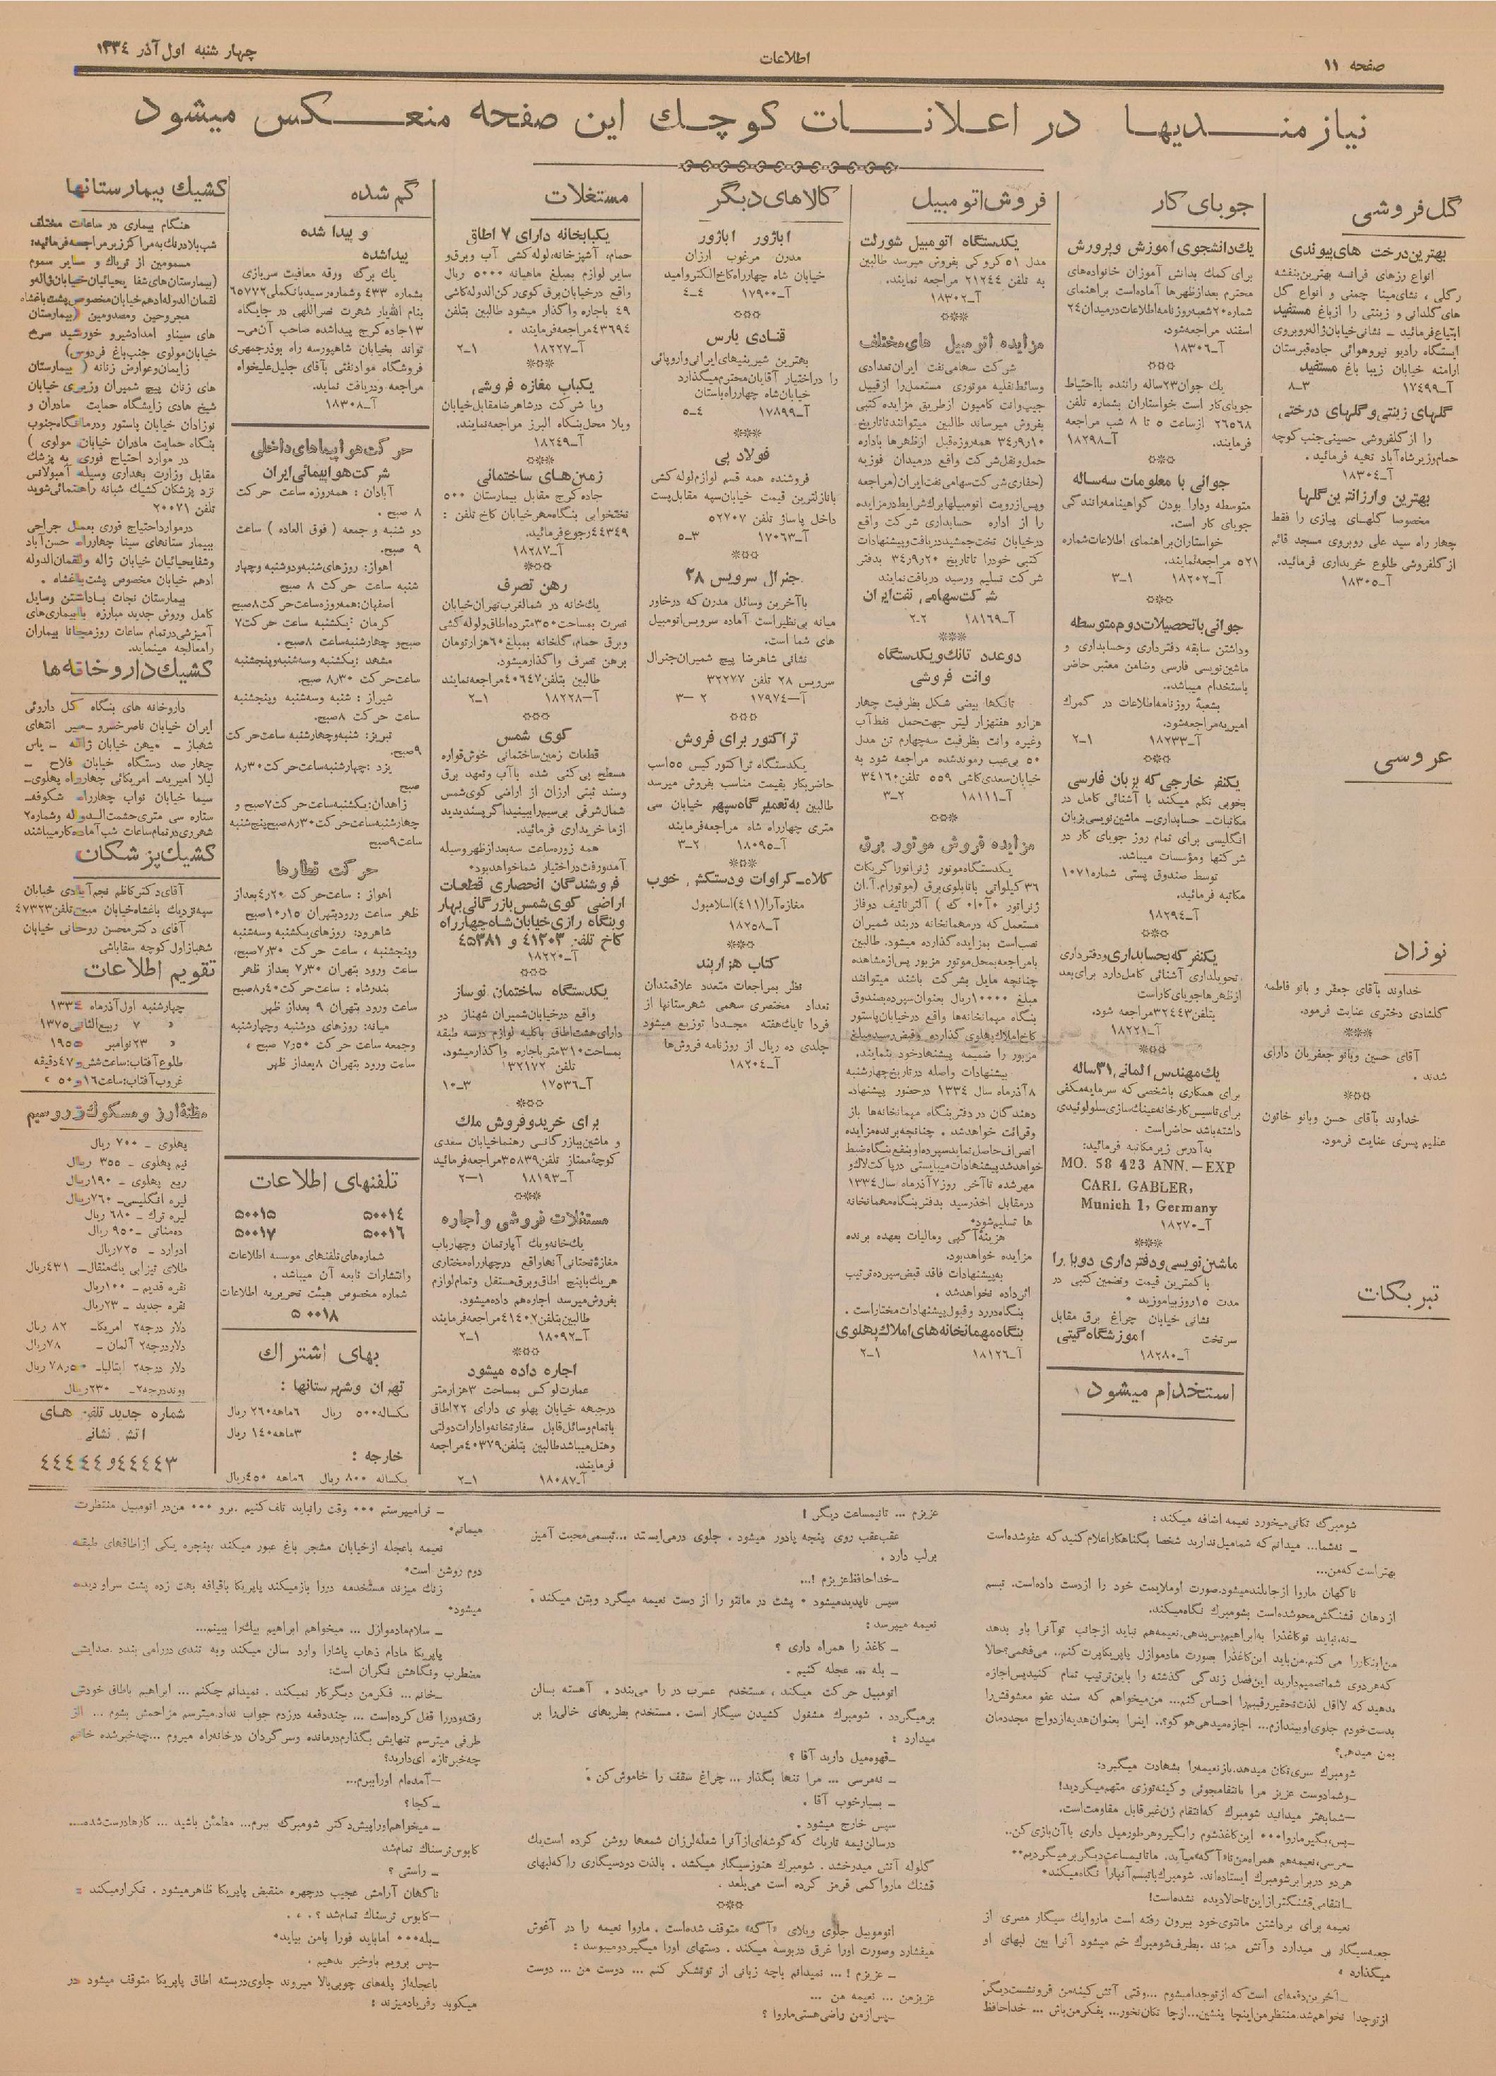 صفحه ۱۱
اطلاعات
چهارشنبه اول آذر ۱۳۳۴
نیازمندیها در اعلانات کوچک این صفحه منعکس میشود
گل فروشی
بهترین درخت های پیوندی
انواع رزهای فرانسه بهترین بنفشه
رگلی ، نشای مینا چمنی و انواع گل
های گلدانی و زینتی را از باغ مستفید
ابتیاع فرمائید ـ نشانی خیابان ژاله روبروی
ایستگاه رادیو نیروهوائی جاده قبرستان
ارامنه خیابان زیبا باغ مستفید
آـ۱۷۴۹۹ ۳ـ۸
گلهای زینتی و گلهای درختی
را از گلفروشی حسینی جنب کوچه
حمام وزیر شاه آباد تهیه فرمائید .
آـ۱۸۳۰۴
بهترین و ارزانترین گلها
مخصوصا گلهای پیازی را فقط
چهار راه سید علی روبروی مسجد قائم
از گلفروشی طلوع خریداری فرمائید.
آـ۱۸۳۰۵
عروسی
نوزاد
خداوند بآقای جعفر و بانو فاطمه
گلشادی دختری عنایت فرمود.
آقای حسین وبانو جعفریان دارای
شدند .
خداوند بآقای حسن وبانو خاتون
عظیم پسری عنایت فرمود.
تبریکات
جویای کار
یک دانشجوی آموزش و پرورش
برای کمک بدانش آموزان خانواده های
محترم بعدازظهرها آماده است براهنمای
شماره ۲۰ شعبه روزنامه اطلاعات درمیدان ۲۴
اسفند مراجعه شود.
آـ۱۸۳۰۶
یک جوان ۲۳ ساله راننده با احتیاط
جویای کار است خواستاران بشماره تلفن
۲۶۵۶۸ از ساعت ۵ تا ۸ شب مراجعه
فرمایند. آـ۱۸۲۹۸
جوانی با معلومات سه ساله
متوسطه ودارا بودن گواهینامه رانندگی
جویای کار است.
خواستاران براهنمای اطلاعات شماره
۵۲۱ مراجعه نمایند.
آـ۱۸۲۰۲ ۱ـ۳
جوانی با تحصیلات دوم متوسطه
وداشتن سابقه دفترداری وحسابداری و
ماشین نویسی فارسی وضامن معتبر حاضر
باستخدام میباشد.
بشعبهٔ روزنامه اطلاعات در گمرک
امیریه مراجعه شود.
آـ۱۸۲۳۳ ۱ـ۲
یکنفر خارجی که بزبان فارسی
بخوبی تکلم میکند با آشنائی کامل در
مکاتبات ـ حسابداری ـ ماشین نویسی بزبان
انگلیسی برای تمام روز جویای کار در
شرکتها ومؤسسات میباشد.
توسط صندوق پستی شماره ۱۰۷۱
مکاتبه فرمائید.
آـ۱۸۲۹۴
یکنفر که بحسابداری ودفترداری
تحویلداری آشنائی کامل دارد برای بعد
ازظهرها جویای کار است
بتلفن ۳۲۴۴۳ مراجعه شود.
آـ۱۸۲۲۱
یک مهندس المانی ۳۱ ساله
برای همکاری باشخصی که سرمایه مکفی
برای تاسیس کارخانه عینک سازی سلولوئیدی
داشته باشد حاضر است .
به آدرس زیر مکاتبه فرمائید:
MO. 58 423 ANN.—EXP
CARL GABLER,
Munich 1, Germany
آـ۱۸۲۷۰
ماشین نویسی و دفترداری دوبل را
با کمترین قیمت وتضمین کتبی در
مدت ۱۵ روز بیاموزید •
نشانی خیابان چراغ برق مقابل
سرتخت آموزشگاه گیتی
آـ۱۸۲۸۰
استخدام میشود
فروش اتومبیل
یکدستگاه اتومبیل شورلت
مدل ۵۱ کروکی بفروش میرسد طالبین
به تلفن ۲۱۲۴۴ مراجعه نمایند.
آـ۱۸۳۰۲
مزایده اتومبیل های مختلف
شرکت سهامی نفت ایران تعدادی
وسائط نقلیه موتوری مستعمل را از قبیل
جیپ وانت کامیون ازطریق مزایده کتبی
بفروش میرساند طالبین میتوانند تا تاریخ
۳۴ر۹ر۱۰ همه روزه قبل ازظهرها باداره
حمل ونقل شرکت واقع درمیدان فوزیه
(حفاری شرکت سهامی نفت ایران) مراجعه
وپس از رویت اتومبیلها برگ شرایط در مزایده
را از اداره حسابداری شرکت واقع
درخیابان تخت جمشید دریافت و پیشنهادات
کتبی خود را تا تاریخ ۳۴ر۹ر۲۰ بدفتر
شرکت تسلیم و رسید دریافت نمایند
شرکت سهامی نفت ایران
آـ۱۸۱۶۹ ۲ـ۲
دو عدد تانک و یکدستگاه
وانت فروشی
تانکها بیضی شکل بظرفیت چهار
هزارو هفتهزار لیتر جهت حمل نفط آب
وغیره وانت بظرفیت سه چهارم تن مدل
۵۰ بی عیب رموند شده مراجعه شود به
خیابان سعدی کاشی ۵۵۹ تلفن ۳۴۱۶۰
آـ۱۸۱۱۱ ۲ـ۳
مزایده فروش موتور برق
یکدستگاه موتور ژنراتورا کربکات
۳۶ کیلواتی باتابلوی برق (موتورام.آ.ان
ژنراتور ۱۰۲۰ ک ) آلترناتیف دوفاز
مستعمل که درمهمانخانه دربند شمیران
نصب است بمزایده گذارده میشود. طالبین
بامراجعه بمحل موتور مزبور پس ازمشاهده
چنانچه مایل بشرکت باشند میتوانند
مبلغ ۱۰۰۰۰ ریال بعنوان سپرده بصندوق
بنگاه مهمانخانه ها واقع درخیابان پاستور
کاخ املاک پهلوی گذارده و قبض رسید مبلغ
مزبور را ضمیمه پیشنهاد خود بنمایند.
پیشنهادات واصله در تاریخ چهارشنبه
۸ آذرماه سال ۱۳۳۴ درحضور پیشنهاد-
دهندگان در دفتر بنگاه مهمانخانه ها باز
وقرائت خواهد شد . چنانچه برنده مزایده
انصراف حاصل نماید سپرده او بنفع بنگاه ضبط
خواهد شد پیشنهادات میبایستی درپاکت لاک و
مهرشده تا آخر روز ۷ آذرماه سال ۱۳۳۴
درمقابل اخذ رسید بدفتر بنگاه مهمانخانه
ها تسلیم شود•
هزینهٔ آگهی ومالیات بعهده برنده
مزایده خواهد بود.
به پیشنهادات فاقد قبض سپرده ترتیب
اثر داده نخواهد شد .
بنگاه در رد و قبول پیشنهادات مختار است .
بنگاه مهمانخانه های املاک پهلوی
آـ۱۸۱۲۶ ۱ـ۲
کالاهای دیگر
اباژور اباژور
مدرن مرغوب ارزان
خیابان شاه چهارراه کاخ الکتروامید
آـ۱۷۹۰۰ ۴ـ۴
قنادی پارس
بهترین شیرینیهای ایرانی و اروپائی
را در اختیار آقایان محترم میگذارد
خیابان شاه چهارراه باستان
آـ۱۷۸۹۹ ۴ـ۵
فولاد پی
فروشنده همه قسم لوازم لوله کشی
بانازلترین قیمت خیابان سپه مقابل پست
داخل پاساژ تلفن ۵۲۷۰۷
آـ۱۷۰۶۳ ۳ـ۵
جنرال سرویس ۲۸
با آخرین وسائل مدرن که درخاور
میانه بی نظیر است آماده سرویس اتومبیل
های شما است.
نشانی شاهرضا پیچ شمیران جنرال
سرویس ۲۸ تلفن ۳۲۲۷۷
آـ۱۷۹۷۴ ۲ـ۳
تراکتور برای فروش
یکدستگاه تراکتور کیس ۵۵ اسب
حاضر بکار بقیمت مناسب بفروش میرسد
طالبین به تعمیرگاه سپهر خیابان سی
متری چهارراه شاه مراجعه فرمایند
آـ۱۸۰۹۵ ۲ـ۳
کلاه ـ کراوات و دستکش خوب
مغازه آرا (۴۱۱) اسلامبول
آـ۱۸۲۵۸
کتاب هزاربند
نظر بمراجعات متعدد علاقمندان
تعداد مختصری سهمی شهرستانها از
فردا تا یک هفته مجددا توزیع میشود
جلدی ده ریال از روزنامه فروش ها
آـ۱۸۲۰۴
مستغلات
یکبابخانه دارای ۷ اطاق
حمام، آشپزخانه، لوله کشی آب و برق و
سایر لوازم بمبلغ ماهیانه ۵۰۰۰ ریال
واقع در خیابان برق کوی رکن الدوله کاشی
۴۹ باجاره واگذار میشود طالبین بتلفن
۴۳۶۹۴ مراجعه فرمایند .
آـ۱۸۲۲۷ ۱ـ۲
یکباب مغازه فروشی
ویا شرکت درشاهرضا مقابل خیابان
ویلا محل بنگاه البرز مراجعه نمایند.
آـ۱۸۲۴۹
زمین های ساختمانی
جاده کرج مقابل بیمارستان ۵۰۰
تختخوابی بنگاه معر خیابان کاخ تلفن :
۴۴۳۴۹ رجوع فرمائید.
آـ۱۸۲۸۷
رهن تصرف
یک خانه در شمالغرب تهران خیابان
نصرت بمساحت ۳۵۰ متر ده اطاق و لوله کشی
وبرق حمام، گلخانه بمبلغ ۶۰ هزار تومان
برهن تصرف واگذار میشود.
طالبین بتلفن ۴۰۶۴۷ مراجعه نمایند
آـ۱۸۲۲۸ ۱ـ۲
کوی شمس
قطعات زمین ساختمانی خوش قواره
مسطح پی کنی شده با آب وتعهد برق
وسند ثبتی ارزان از اراضی کوی شمس
شمال شرقی بی سیم را ببینید اگر پسندیدید
ازما خریداری فرمائید.
همه روزه ساعت سه بعدازظهر وسیله
آمد و رفت در اختیار شما خواهد بود•
فروشندگان انحصاری قطعات
اراضی کوی شمس بازرگانی بهار
وبنگاه رازی خیابان شاه چهارراه
کاخ تلفن ۴۱۲۰۳ و ۴۵۳۸۱
آـ۱۸۲۲۰
یکدستگاه ساختمان نوساز
واقع درخیابان شمیران شهناز در
دارای هشت اطاق باکلیه لوازم درسه طبقه
بمساحت ۳۱۰ متر باجاره واگذار میشود.
تلفن ۳۲۱۷۲
آـ۱۷۵۳۶ ۳ـ۱۰
برای خرید و فروش ملک
و ماشین ببازرگانی رهنما خیابان سعدی
کوچهٔ ممتاز تلفن ۳۵۸۳۹ مراجعه فرمائید
آـ۱۸۱۹۳ ۱ـ۲
مستغلات فروشی و اجاره
یک خانه و یک آپارتمان وچهارباب
مغازهٔ تحتانی آنها واقع درچهارراه مختاری
هریک با پنج اطاق وبرق مستقل وتمام لوازم
بفروش میرسد اجاره هم داده میشود.
طالبین بتلفن ۴۱۴۰۲ مراجعه فرمایند
آـ۱۸۰۹۲ ۱ـ۲
اجاره داده میشود
عمارت لوکس بمساحت ۳ هزارمتر
درجبهه خیابان پهلوی دارای ۲۲ اطاق
باتمام وسائل قابل سفارتخانه و ادارات دولتی
وهتل میباشد طالبین بتلفن ۴۰۳۷۹ مراجعه
فرمایند.
آـ۱۸۰۸۷ ۱ـ۲
گم شده
و پیدا شده
پیدا شده
یک برگ ورقه معافیت سربازی
بشماره ۴۳۳ وشماره رسید بانکملی ۶۵۷۷۲
بنام الله یار شهرت نصراللهی در جایگاه
۱۳ جاده کرج پیدا شده صاحب آن می-
تواند بخیابان شاهپور سه راه بوذرجمهری
فروشگاه مواد نفتی بآقای جلیل علیخواه
مراجعه ودریافت نماید.
آـ۱۸۳۰۸
حرکت هواپیماهای داخلی
شرکت هواپیمائی ایران
آبادان : همه روزه ساعت حرکت
۸ صبح .
دو شنبه و جمعه ( فوق العاده ) ساعت
۹ صبح.
اهواز: روزهای شنبه ودوشنبه وچهار
شنبه ساعت حرکت ۸ صبح
اصفهان: همه روزه ساعت حرکت ۸ صبح
کرمان : یکشنبه ساعت حرکت ۷
صبح و چهارشنبه ساعت ۸ صبح .
مشهد : یکشنبه وسه شنبه وپنجشنبه
ساعت حرکت ۳۰ر۸ صبح.
شیراز : شنبه وسه شنبه وپنجشنبه
ساعت حرکت ۸ صبح.
تبریز: شنبه و چهارشنبه ساعت حرکت
۹ صبح.
یزد : چهارشنبه ساعت حرکت ۳۰ر۸
صبح
زاهدان: یکشنبه ساعت حرکت ۷ صبح و
چهارشنبه ساعت حرکت ۳۰ر۸ صبح پنج شنبه
ساعت ۹ صبح
حرکت قطارها
اهواز : ساعت حرکت ۲۰ر۴ بعداز
ظهر ساعت ورود بتهران ۱۵ر۱۰ صبح
شاهرود: روزهای یکشنبه وسه شنبه
وپنجشنبه ، ساعت حرکت ۳۰ر۷ صبح،
ساعت ورود بتهران ۳۰ر۷ بعداز ظهر
بندرشاه : ساعت حرکت ۴۰ر۸ صبح
ساعت ورود بتهران ۹ بعداز ظهر
میانه: روزهای دوشنبه وچهارشنبه
وجمعه ساعت حرکت ۵۰ر۷ صبح ،
ساعت ورود بتهران ۸ بعداز ظهر
تلفنهای اطلاعات
۵۰۰۱۴ ۵۰۰۱۵
۵۰۰۱۶ ۵۰۰۱۷
شماره های تلفنهای موسسه اطلاعات
وانتشارات تابعه آن میباشد .
شماره مخصوص هیئت تحریریه اطلاعات
۵۰۰۱۸
بهای اشتراک
تهران و شهرستانها :
یکساله ۵۰۰ ریال ۶ ماهه ۲۶۰ ریال
۳ ماهه ۱۴۰ ریال
خارجه :
یکساله ۸۰۰ ریال ۶ ماهه ۴۵۰ ریال
کشیک بیمارستانها
هنگام بیماری در ساعات مختلف
شب بلادرنگ به مراکز زیر مراجعه فرمائید:
مسمومین از تریاک و سایر سموم
(بیمارستان های شفا یحیائیان خیابان ژاله و
لقمان الدوله ادهم خیابان مخصوص پشت باغشاه
مجروحین ومصدومین (بیمارستان
های سیناو امدادشیرو خورشید سرخ
خیابان مولوی جنب باغ فردوس)
زایمان وعوارض زنانه ( بیمارستان
های زنان پیچ شمیران وزیری خیابان
شیخ هادی زایشگاه حمایت مادران و
نوزادان خیابان پاستور ودرمانگاه جنوب
بنگاه حمایت مادران خیابان مولوی )
در موارد احتیاج فوری به پزشک
مقابل وزارت بهداری وسیله آمبولانس
نزد پزشکان کشیک شبانه راهنمائی شوید
تلفن ۲۰۰۷۱
درموارد احتیاج فوری بعمل جراحی
ببیمارستانهای سینا چهارراه حسن آباد
وشفا یحیائیان خیابان ژاله و لقمان الدوله
ادهم خیابان مخصوص پشت باغشاه .
بیمارستان نجات باداشتن وسایل
کامل وروش جدید مبارزه بابیماری های
آمیزشی در تمام ساعات روز مجانا بیماران
را معالجه مینماید.
کشیک داروخانه ها
داروخانه های بنگاه کل داروئی
ایران خیابان ناصرخسرو ـ میر انتهای
شهباز ـ میهن خیابان ژاله ـ یاس
چهارصد دستگاه خیابان فلاح ـ
لیلا امیریه ـ امریکائی چهارراه پهلوی ـ
سینا خیابان نواب چهارراه شکوفه ـ
ستاره سی متری حشمت الدوله وشماره ۲
شهرری در تمام ساعات شب آماده کار میباشند
کشیک پزشکان
آقای دکتر کاظم نجم آبادی خیابان
سپه نزدیک باغشاه خیابان مبیح تلفن ۴۷۳۲۳
آقای دکتر محسن روحانی خیابان
شهباز اول کوچه سقاباشی
تقویم اطلاعات
چهارشنبه اول آذرماه ۱۳۳۴
» ۷ ربیع الثانی ۱۳۷۵
» ۲۳ نوامبر ۱۹۵۵
طلوع آفتاب: ساعت شش و ۴۷ دقیقه
غروب آفتاب: ساعت ۱۶ و ۵۰ »
مظنهٔ ارز و مسکوک زر و سیم
پهلوی ـ ۷۰۰ ریال
نیم پهلوی ـ ۳۵۵ ریال
ربع پهلوی ـ ۱۹۰ ریال
لیره انگلیسی ـ ۷۶۰ ریال
لیره ترک ـ ۶۸۰ ریال
ده مناتی ـ ۹۵۰ ریال
ادوارد ـ ۷۲۵ ریال
طلای تیزابی یک مثقال ـ ۴۳۱ ریال
نقره قدیم ـ ۱۰۰ ریال
نقره جدید ـ ۲۳ ریال
دلار درجه ۲ امریکا ـ ۸۲ ریال
دلار درجه ۲ آلمان ـ ۷۸ ریال
دلار درجه ۲ ایتالیا ـ ۵۰ر۷۸ ریال
پوند درجه ۲ ـ ۲۳۰ ریال
شماره جدید تلفن های
آتش نشانی
۴۴۴۴۳ و ۴۴۴۴۴
شومبرگ تکانی میخورد نعیمه اضافه میکند :
ـ نه شما... میدانم که شما میل ندارید شخصا بگناهکار اعلام کنید که عفو شده است
بهتر است که من...
ناگهان ماروا از جا بلند میشود. صورت او ملایمت خود را ازدست داده است. تبسم
از دهان قشنگش محو شده است بشومبرگ نگاه میکند.
ـ نه، نباید تو کاغذ را به ابراهیم پس بدهی. نعیمه هم نباید ازجانب تو آنرا باو بدهد
من اینکار را می کنم. من باید این کاغذ را بصورت مادموازل پاپریکا پرت کنم.. می فهمی؟ حالا
که هردوی شما تصمیم دارید این فصل زندگی گذشته را باین ترتیب تمام کنید پس اجازه
بدهید که لااقل لذت تحقیر رقیبم را احساس کنم... من میخواهم که سند عفو معشوقش را
بدست خودم جلوی او بیندازم... اجازه میدهی هو گو؟.. اینرا بعنوان هدیه ازدواج مجددمان
بمن میدهی؟
شومبرگ سری تکان میدهد. باز نعیمه را بشهادت میگیرد:
ـ وشما دوست عزیز مرا بانتقامجوئی و کینه توزی متهم میکردید!
ـ شما بهتر میدانید شومبرگ که انتقام زن غیرقابل مقاومت است.
ـ پس، بگیر ماروا... این کاغذ شوم را بگیر و هرطور میل داری با آن بازی کن..
ـ مرسی، نعیمه هم همراه من تا «آگه» میآید. ما تا نیمساعت دیگر بر میگردیم..
هردو در برابر شومبرگ ایستاده اند. شومبرگ با تبسم آنها را نگاه میکند•
ـ انتقامی قشنگتر از این تا حالا دیده نشده است!
نعیمه برای برداشتن مانتوی خود بیرون رفته است ماروا یک سیگار مصری از
جعبه سیگار بر میدارد و آتش میزند. بطرف شومبرگ خم میشود آنرا بین لبهای او
میگذارد •
ـ آخرین دفعه ای است که از تو جدا میشوم ... وقتی آتش کینه من فرو نشست دیگر
از تو جدا نخواهم شد. منتظر من اینجا بنشین... از جا تکان نخور... بفکر من باش ... خدا حافظ
عزیزم ... تا نیمساعت دیگر !
عقب عقب روی پنجه پا دور میشود . جلوی در می ایستد ... تبسمی محبت آمیز
برلب دارد .
ـ خداحافظ عزیزم !...
سپس ناپدید میشود • پشت در مانتو را از دست نعیمه میگیرد و بتن میکند .
نعیمه میپرسد :
ـ کاغذ را همراه داری ؟
ـ بله ... عجله کنیم .
اتومبیل حرکت میکند ، مستخدم عرب در را می بندد . آهسته بسالن
بر میگردد . شومبرگ مشغول کشیدن سیگار است . مستخدم بطریهای خالی را بر
میدارد :
ـ قهوه میل دارید آقا ؟
ـ نه مرسی ... مرا تنها بگذار ... چراغ سقف را خاموش کن .
ـ بسیار خوب آقا .
سپس خارج میشود .
در سالن نیمه تاریک که گوشه ای از آنرا شعله لرزان شمعها روشن کرده است یک
گلوله آتش میدرخشد . شومبرگ هنوز سیگار میکشد . بالذت دود سیگاری را که لبهای
قشنگ ماروا کمی قرمز کرده است می بلعد .
اتومبیل جلوی ویلای «آگه» متوقف شده است . ماروا نعیمه را در آغوش
میفشارد وصورت اورا غرق در بوسه میکند . دستهای اورا میگیرد و میبوسد :
ـ عزیزم !... نمیدانم باچه زبانی از تو تشکر کنم ... دوست من ... دوست
عزیز من ... نعیمه من ...
ـ پس از من راضی هستی ماروا ؟
ـ ترا میپرستم ... وقت را نباید تلف کنیم .برو ... من در اتومبیل منتظرت
میمانم•
نعیمه باعجله از خیابان مشجر باغ عبور میکند ، پنجره یکی از اطاقهای طبقه
دوم روشن است•
زنگ میزند مستخدمه در را باز میکند پاپریکا باقیافه بهت زده پشت سر او دیده
میشود•
ـ سلام مادموازل ... میخواهم ابراهیم بیک را ببینم...
پاپریکا مادام ذهاب پاشا را وارد سالن میکند و به تندی در را می بندد .صدایش
مضطرب ونگاهش نگران است:
ـ خانم ... فکر من دیگر کار نمیکند . نمیدانم چکنم ... ابراهیم باطاق خودش
رفته ودر را قفل کرده است ... چند دفعه درزدم جواب نداد. میترسم مزاحمش بشوم ... از
طرفی میترسم تنهایش بگذارم درمانده وسرگردان درخانه راه میروم ... چه خبر شده خانم
چه خبر تازه ای دارید؟
ـ آمده ام اورا ببرم...
ـ کجا؟
ـ میخواهم او را پیش دکتر شومبرگ ببرم... مطمئن باشید ... کارها درست شده ...
کابوس ترسناک تمام شد
ـ راستی ؟
ناگهان آرامش عجیب درچهره منقبض پاپریکا ظاهر میشود . تکرار میکند :
ـ کابوس ترسناک تمام شد ؟ . . .
ـ بله... اما باید فورا بامن بیاید•
ـ پس برویم باو خبر بدهیم .
باعجله از پله های چوبی بالا میروند جلوی در بسته اطاق پاپریکا متوقف میشود در
میکوبد وفریاد میزند :